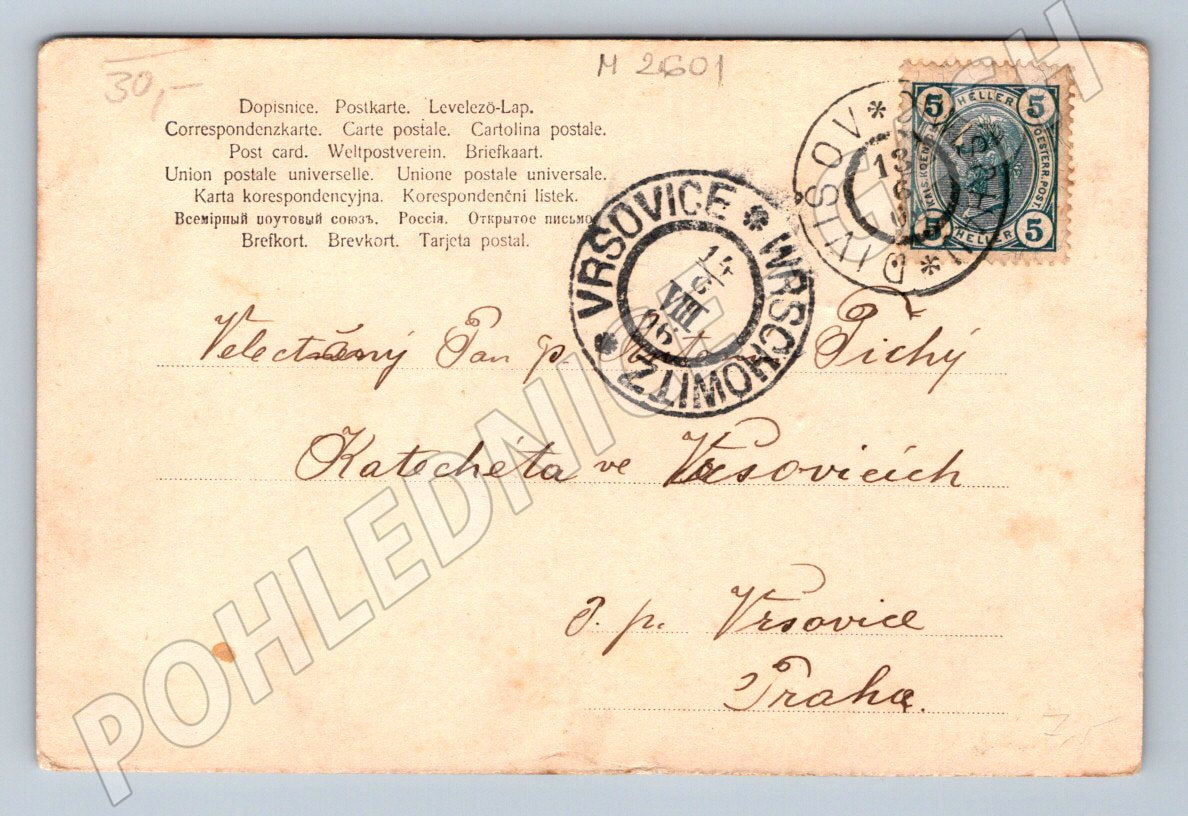 30,-
M 2601
Dopisnice. Postkarte. Levelező-Lap.
Correspondenzkarte. Carte postale. Cartolina postale.
Post card. Weltpostverein. Briefkaart.
Union postale universelle. Unione postale universale.
Karta korespondencyjna. Korespondenční lístek.
Всемірный поутовый союзъ. Россія. Открытое письмо
Brefkort. Brevkort. Tarjeta postal.
DIVIŠOV * * DIWISCHAU
13
5 HELLER 5
KAIS. KOENIGL. OESTERR. POST
5 HELLER 5
VRSOVICE * WRSCHOWITZ *
14
VIII
06
Velectěný Pan p. Tichý
Katecheta ve Vrsovicích
P. p. Vrsovice
Praha.
POHLEDNICE